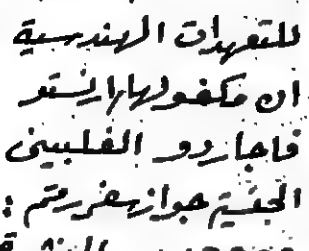 للتعهدات الهندسية
ان مكفولها ارنستو
فاجاردو الفلبيني
الجنسية جواز سفر رقم :